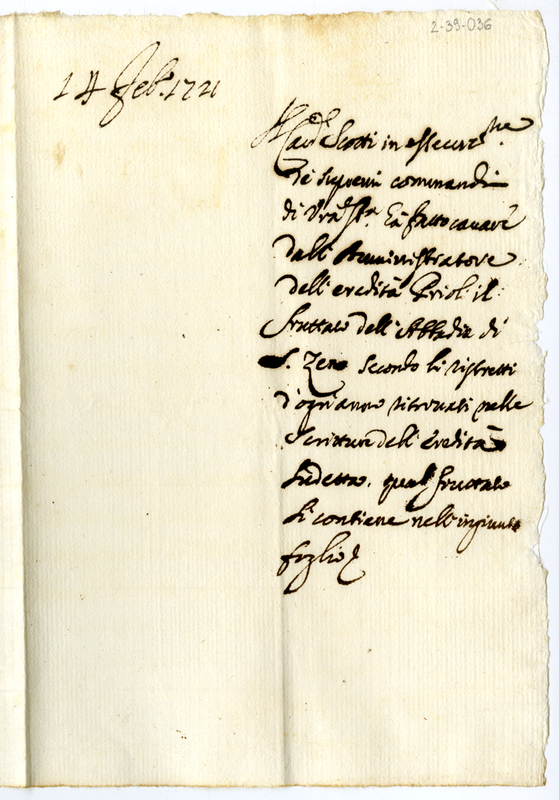 2-39-036
14 Feb.º 1721
Scotti in essecuz.ne
de supremi commandi
di Vra Sr.ª hà fatto cavare
dall' Amministratore
dell' eredità Prioli il
fruttato dell' Abbadia di
S. Zeno secondo li ristretti
d'ogn'anno ritrovati nelle
scritture dell' eredità
sudetta, qual fruttato
si contiene nell' ingiunto
foglio